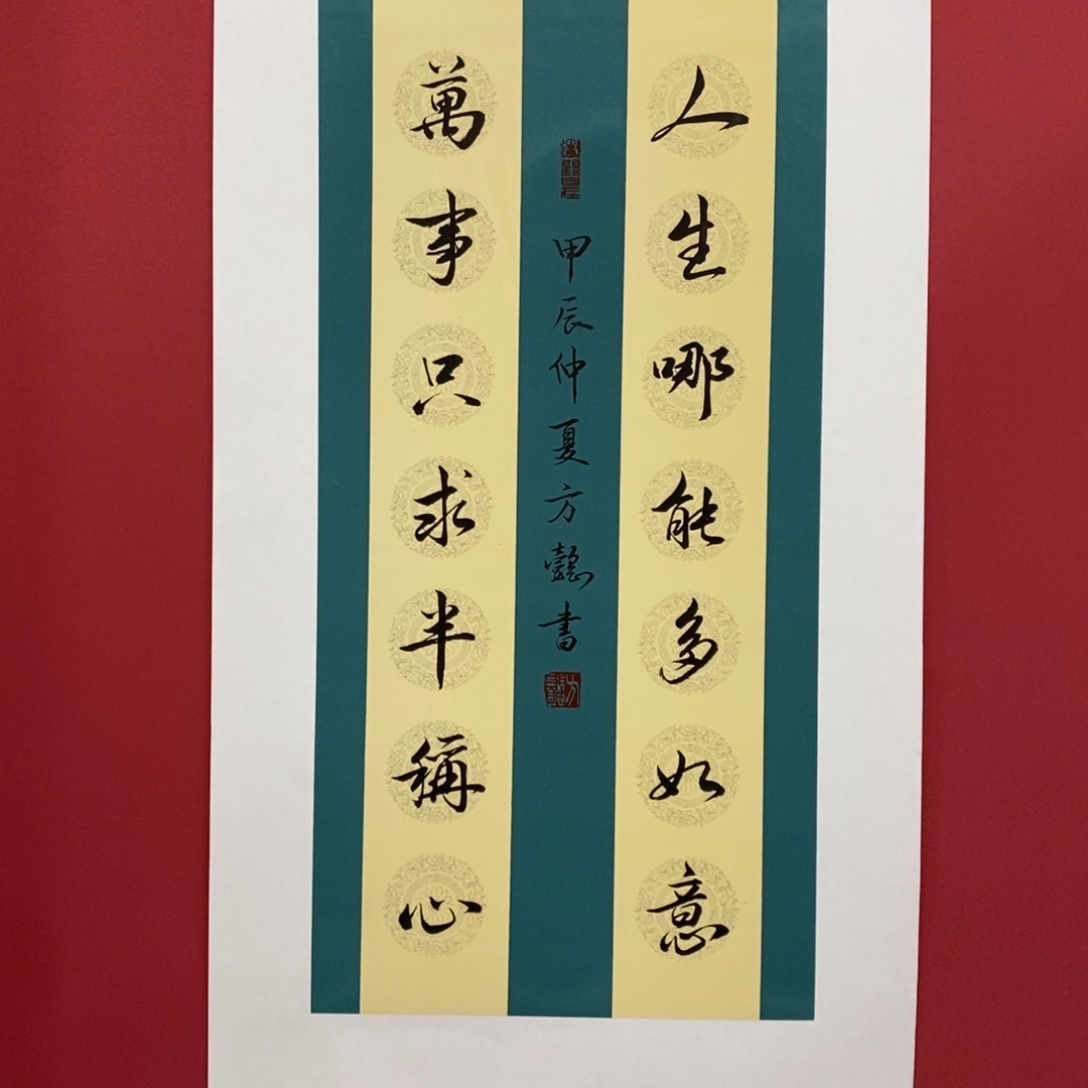 人生哪能多如意
萬事只求半稱心
甲辰仲夏方懿書